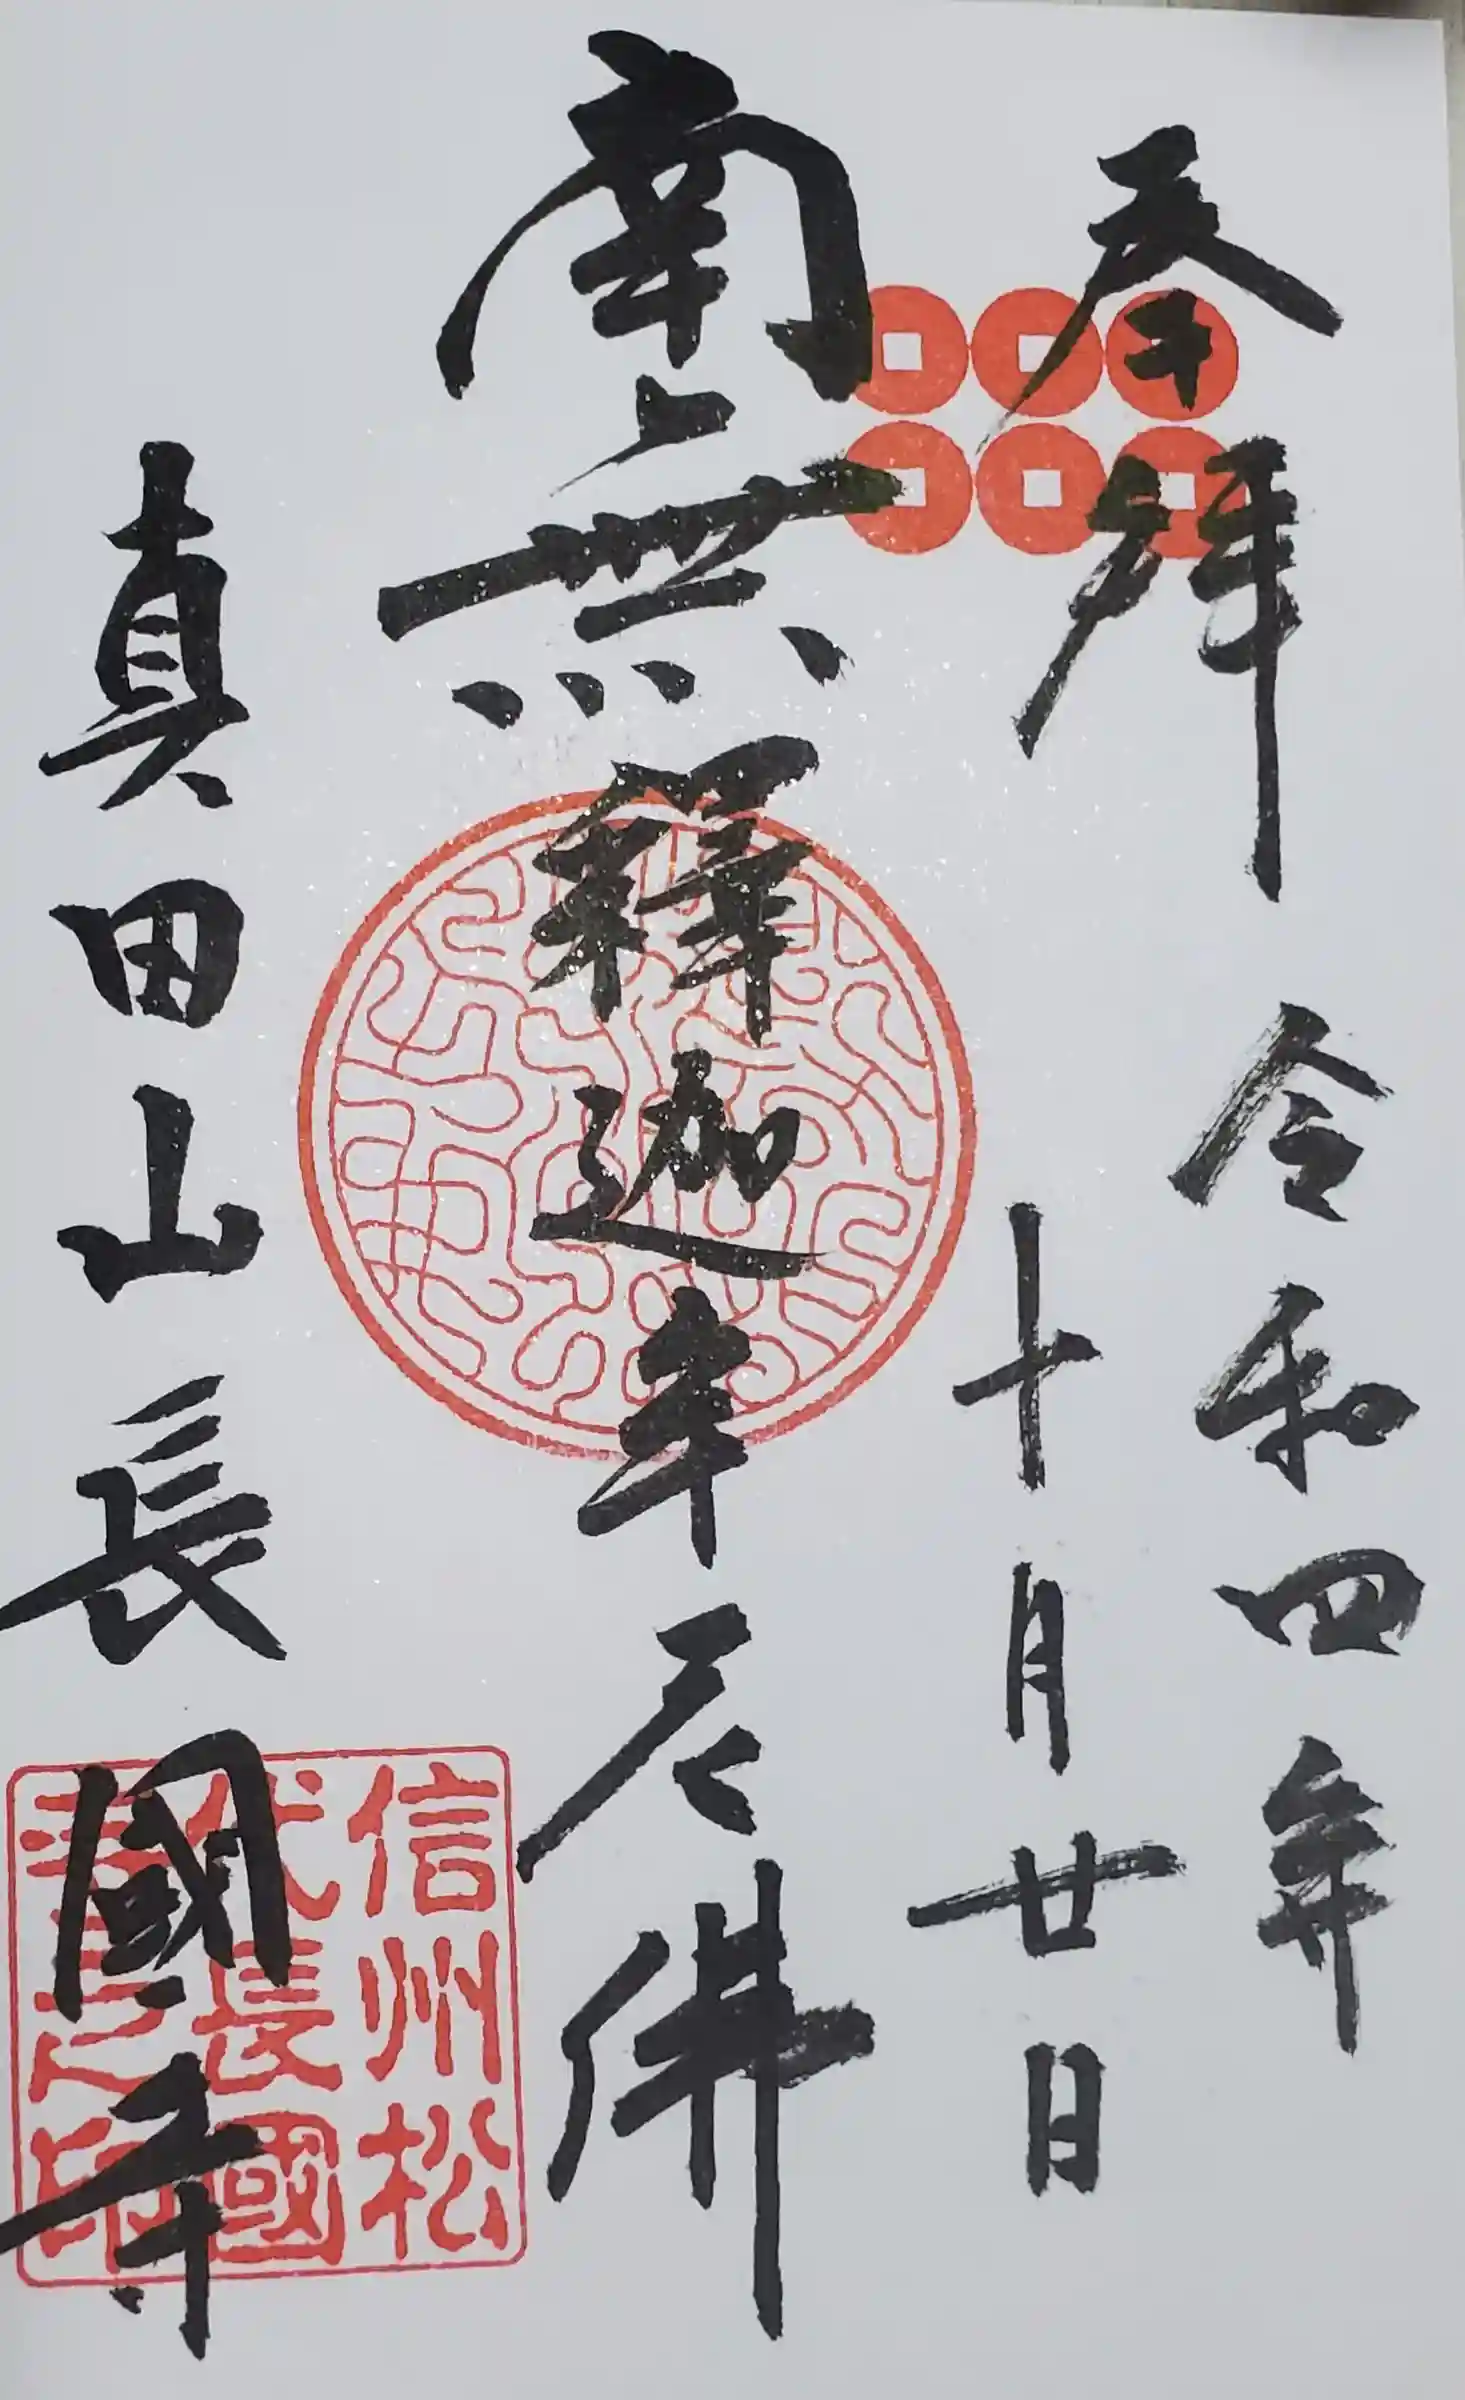 奉拝
令和四年
十月廿日
南無釋迦牟尼佛
真田山長國寺
信州松
代長國
之印